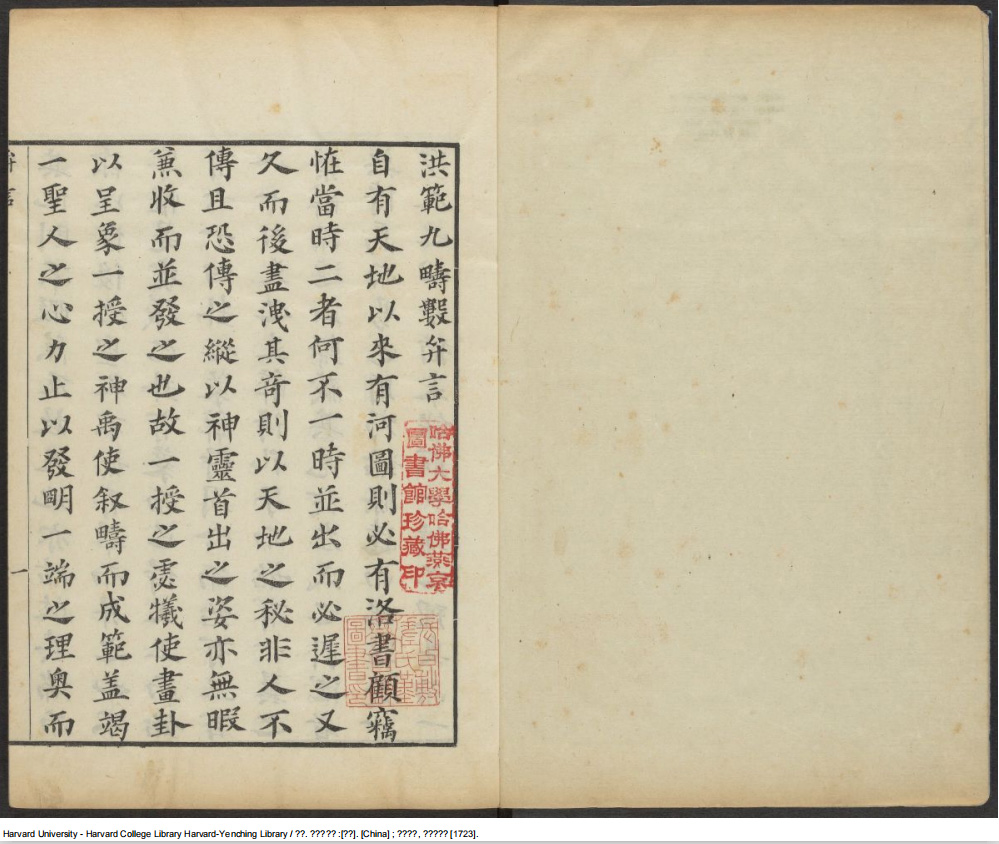 洪範九疇數弁言
自有天地以來有河圖則必有洛書顧竊
恠當時二者何不一時並出而必遲之又
久而後盡洩其竒則以天地之秘非人不
傳且恐傳之縱以神靈首出之姿亦無暇
兼收而並發之也故一授之虙犧使畫卦
以呈象一授之神禹使叙疇而成範盖竭
一聖人之心力止以發明一端之理奥而
弁言
一
哈佛大學哈佛燕京
圖書館珍藏印
Harvard University - Harvard College Library Harvard-Yenching Library / ??. ????? :[??]. [China] ; ????, ????? [1723].